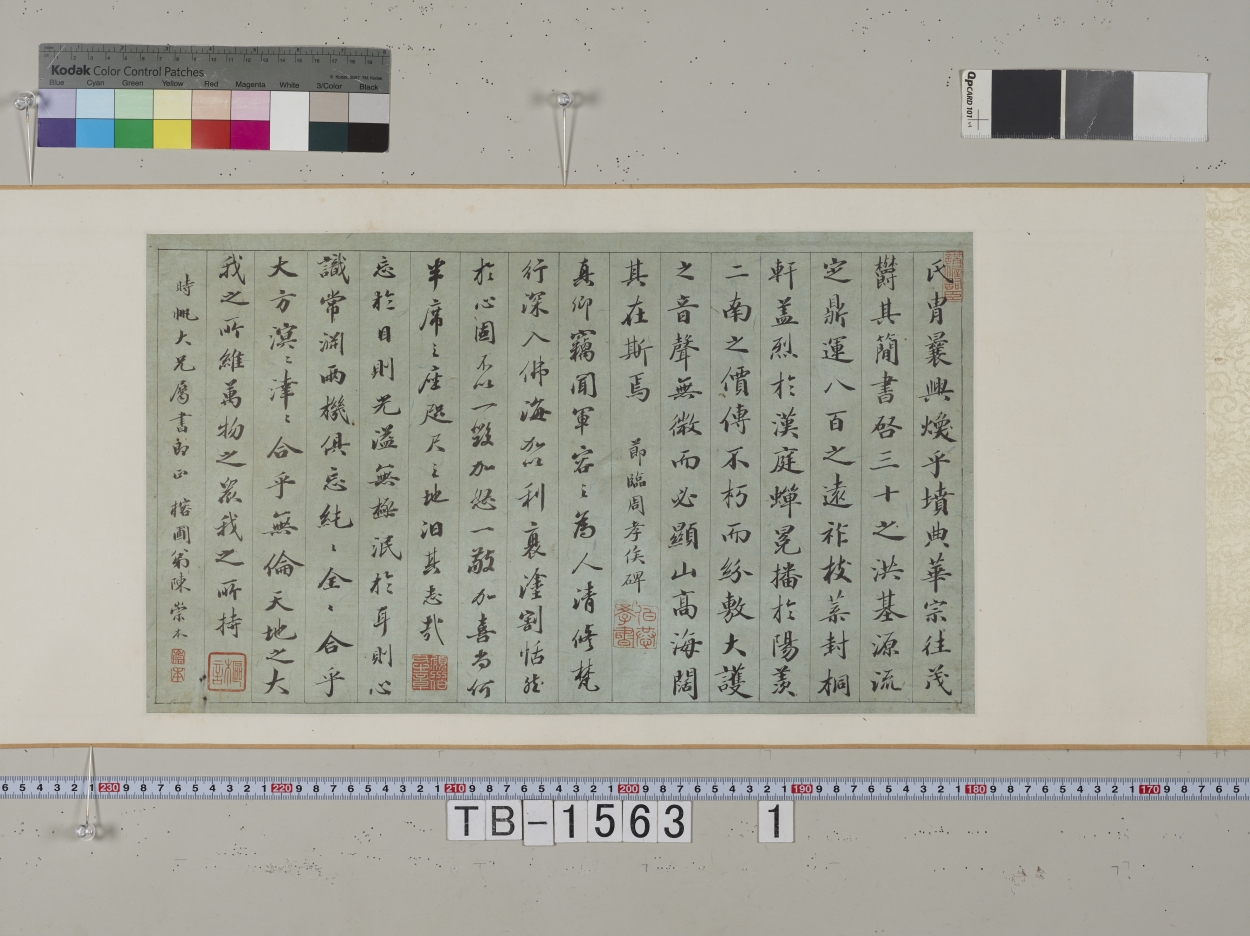 氏冑曩興煥乎墳典華宗往茂
欝其簡書啓三十之洪基源流
定鼎運八百之遠祚枝葉封桐
軒盖烈於漢庭蟬冕播於陽羨
二南之價傳不朽而紛敷大護
之音聲無微而必顯山高海闊
其在斯焉 節臨周孝侯碑
真卿竊聞軍容之為人清修梵
行深入佛海加以利衰塗割恬然
於心固不以一毀加怒一敬加喜尚何
半席之座咫尺之地汨其志哉
忘於目則光溢無極泯於耳則心
識常淵兩機俱忘純〻全〻合乎
大方溟〻涬〻合乎無倫天地之大
我之所維萬物之衆我之所持
時帆大兄屬書即正 楷圃弟陳崇本
Kodak Color Control Patches
Blue Cyan Green Yellow Red Magenta White 3/Color Black
QPCARD 101
230 220 210 200 190 180 170
TB-1563 1